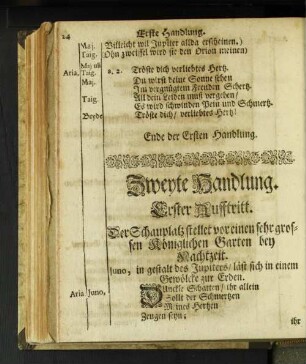 24 Erste Handlung.
Maj. Villeicht wil Jupiter allda erscheinen.)
Taig. Ohn zweiffel wird sie den Orion meinen)
Maj. und
Aria. Taig. a. 2. Tröste dich verliebtes Hertz.
Maj. Du wirst deine Sonne sehen
Im vergnügtem Freuden Schertz.
Taig. All dein Leiden muß vergehen/
Es wird schwinden Pein und Schmertz.
Beyde Tröste dich/ verliebtes Hertz!
Ende der Ersten Handlung.
Zweyte Handlung.
Erster Aufftritt.
Der Schauplatz stellet vor einen sehr gros-
sen Königlichen Garten bey
Nachtzeit.
Juno, in gestalt des Jupiters/ läst sich in einem
Gewölcke zur Erden.
Aria Juno, Dunckle Schatten/ ihr allein
Sollt der Schmertzen
Meines Hertzen
Zeugen seyn;
ihr